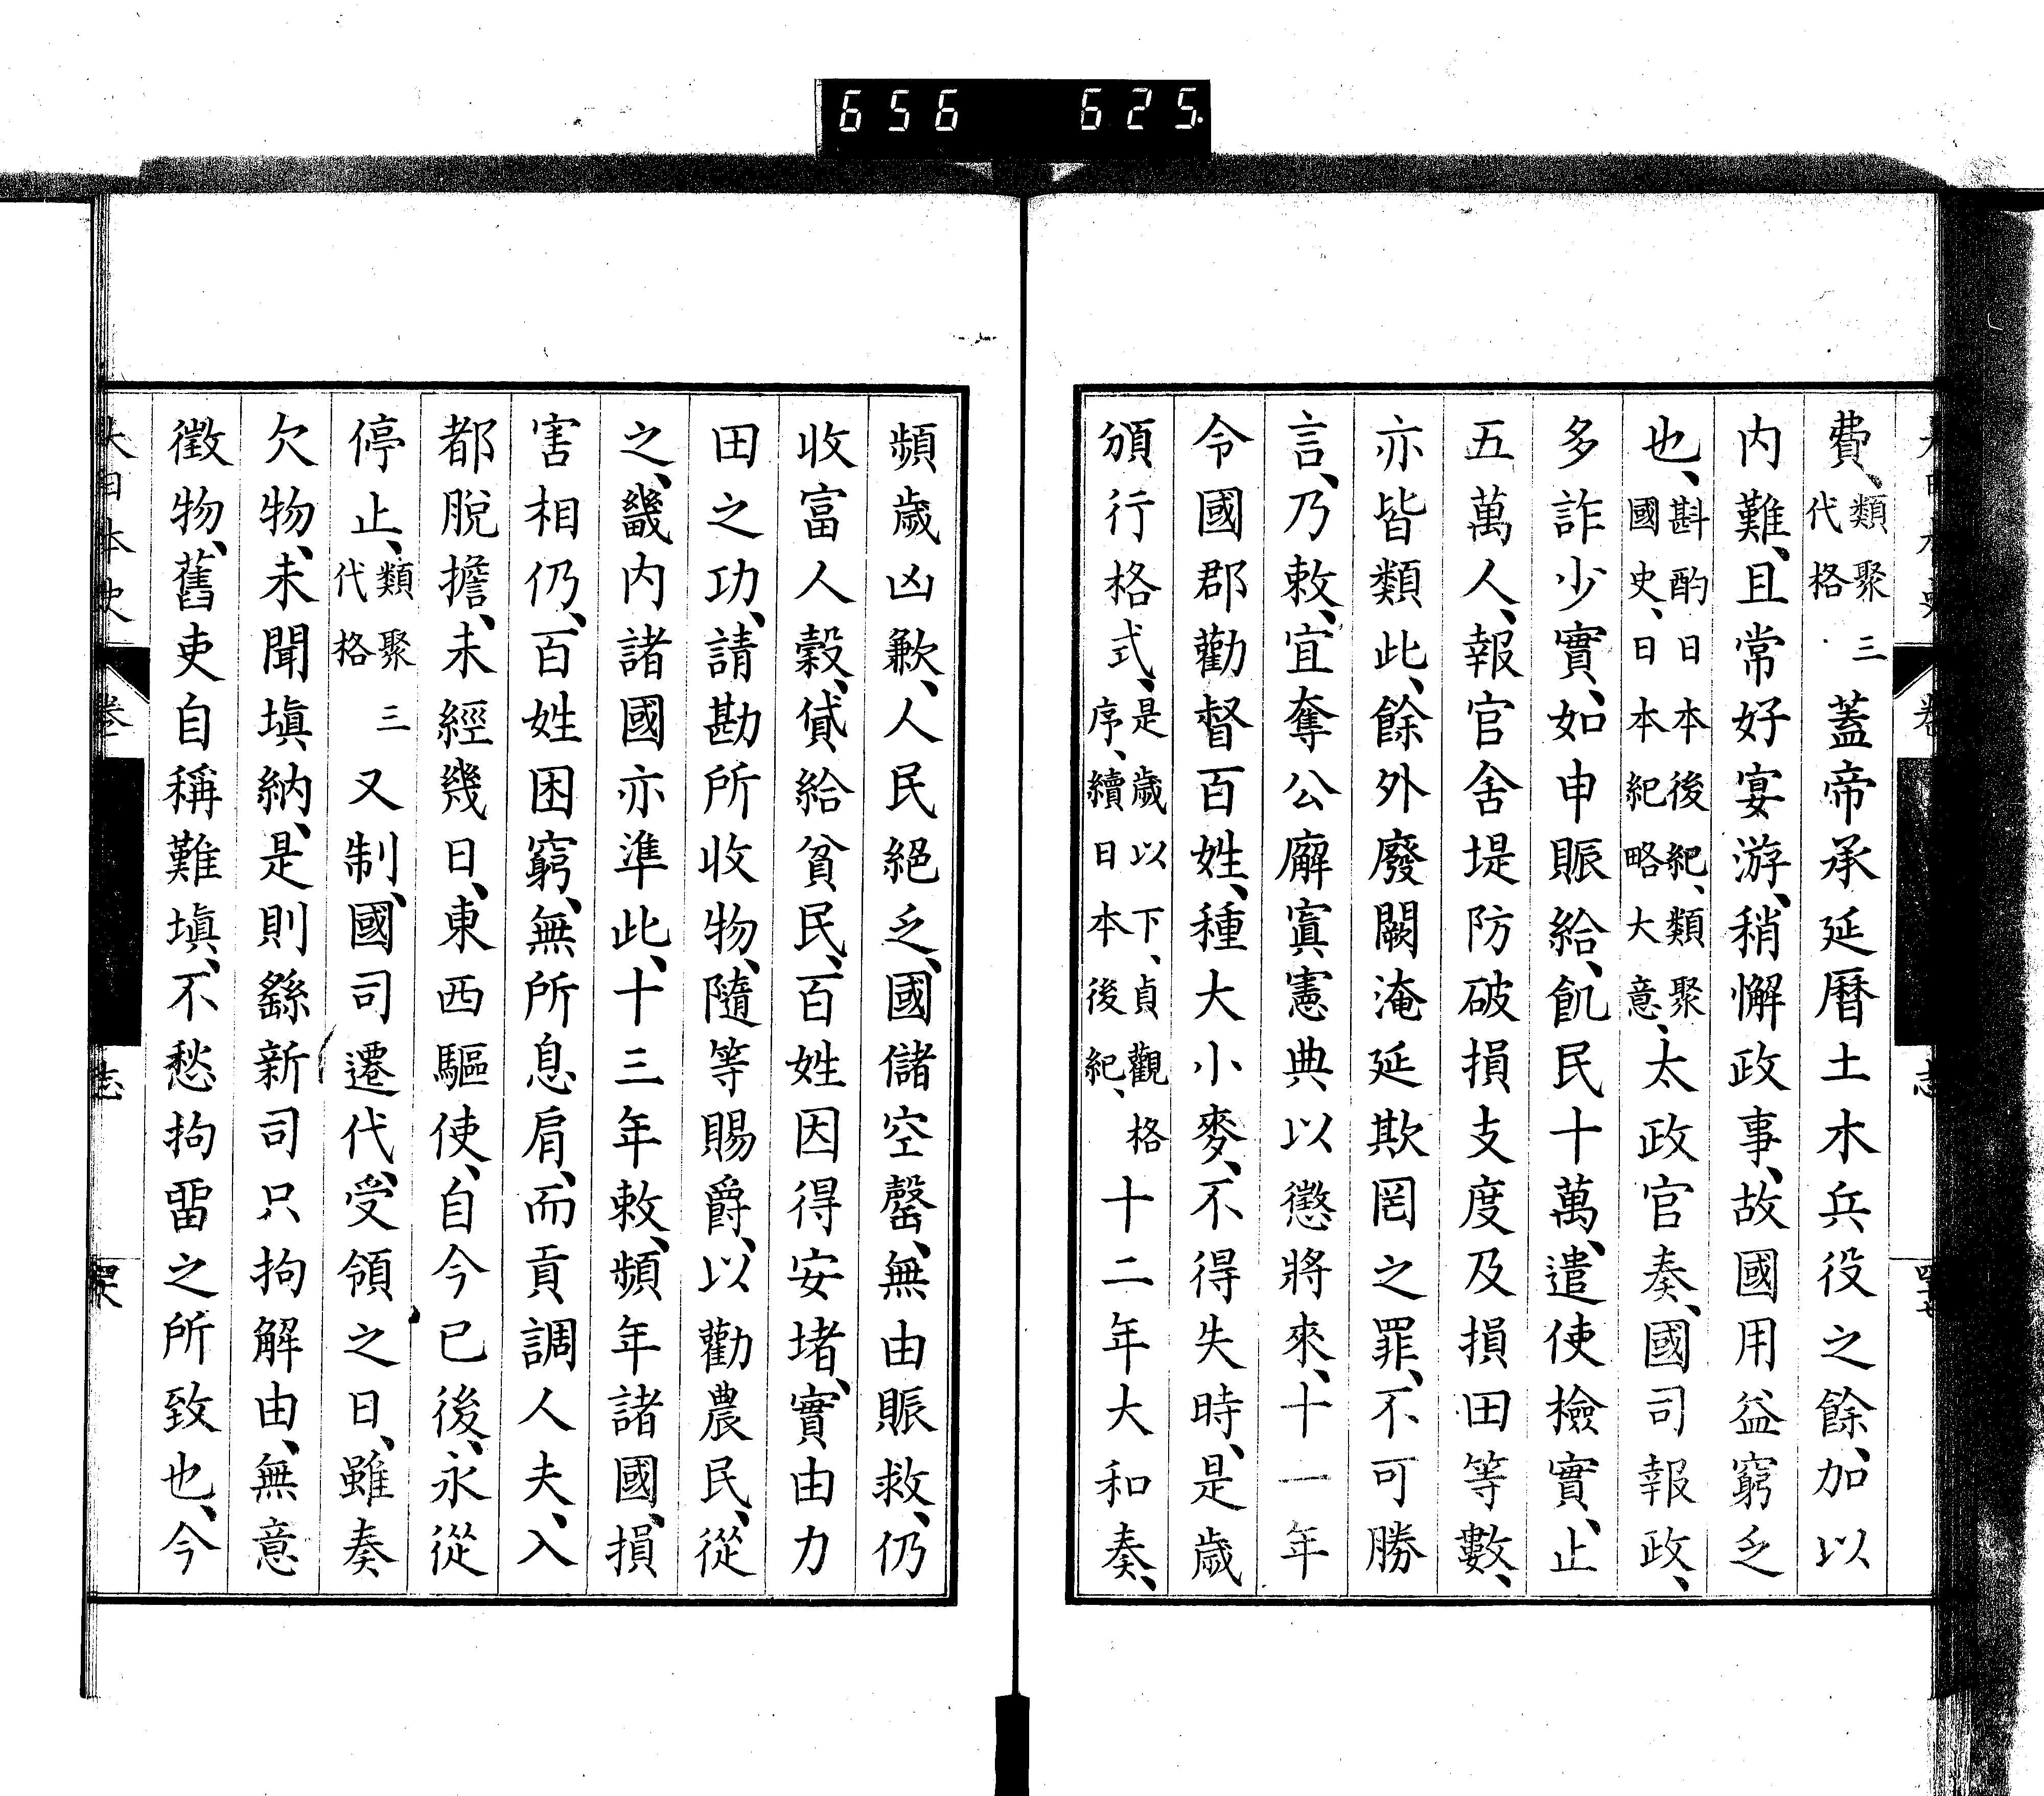 656 625.
費、類聚三代格蓋帝承延曆土木兵役之餘、加以
内難、且常好宴游、稍懈政事、故國用益窮乏
也、斟酌日本後紀、類聚國史、日本紀略大意、太政官奏、國司報政、
多詐少實、如申賑給、飢民十萬、遣使檢實、止
五萬人、報官舍堤防破損支度及損田等數、
亦皆類此、餘外廢闕淹延欺罔之罪、不可勝
言、乃敕、宜奪公廨寘憲典、以懲將來、十一年
令國郡勸督百姓、種大小麥、不得失時、是歲
頒行格式、是歲以下、貞觀格序、續日本後紀、十二年大和奏、
頻歲凶歉、人民絕乏、國儲空罄、無由賑救、仍
收富人穀、貸給貧民、百姓因得安堵、實由力
田之功、請勘所收物、隨等賜爵、以勸農民、從
之、畿内諸國亦準此、十三年敕、頻年諸國、損
害相仍、百姓困窮、無所息肩、而貢調人夫、入
都脫擔、未經幾日、東西驅使、自今已後、永從
停止、類聚三代格又制、國司遷代、受領之日、雖奏
欠物、未聞塡納、是則繇新司只拘解由、無意
徵物、舊吏自稱難塡、不愁拘畱之所致也、今
大日本史 卷 志